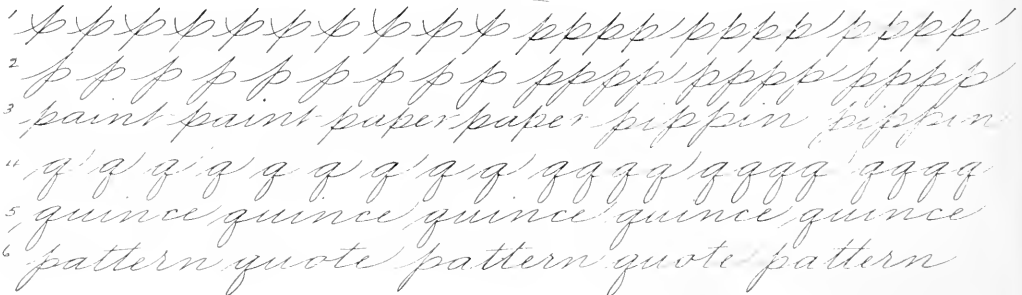 1 p p p p p p p p p p pppp pppp pppp
2 p p p p p p p p p p pppp pppp pppp
3 paint paint paper paper pippin pippin
4 q q q q q q q q q qqqq qqqq qqqq
5 quince quince quince quince quince
6 pattern quote pattern quote pattern